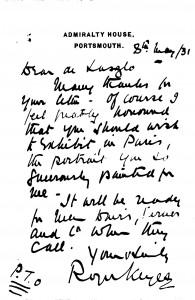 ADMIRALTY HOUSE,
PORTSMOUTH.
8th May/31
Dear de Laszlo
Many thanks for
your letter - Of course I
feel greatly honoured
that you should wish
to exhibit in Paris,
the portrait you so
generously painted for
me - It will be ready
for Messrs
and Co when they
call.
Yours
Roger Keyes
P.T.O